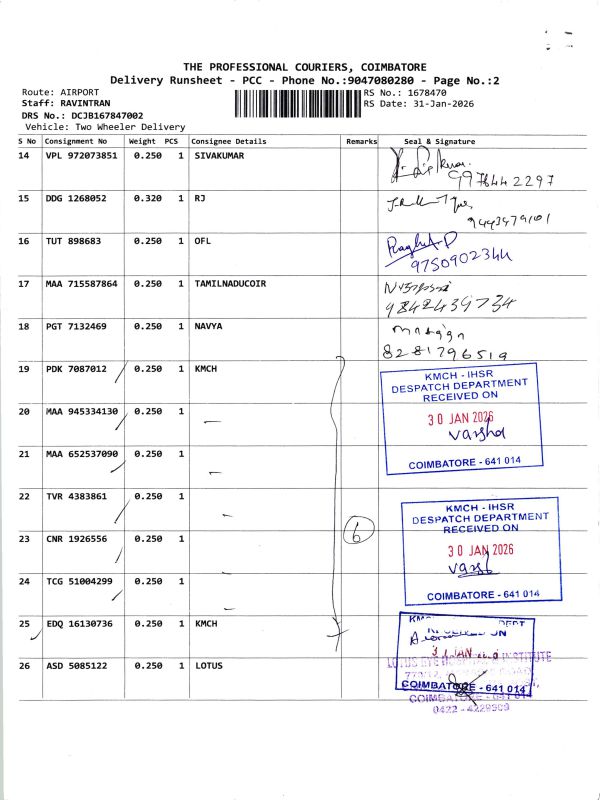 THE PROFESSIONAL COURIERS, COIMBATORE
Delivery Runsheet - PCC - Phone No.:9047080280 - Page No.:2
Route: AIRPORT RS No.: 1678470
Staff: RAVINTRAN RS Date: 31-Jan-2026
DRS No.: DCJB167847002
Vehicle: Two Wheeler Delivery
S No Consignment No Weight PCS Consignee Details Remarks Seal & Signature
14 VPL 972073851 0.250 1 SIVAKUMAR
9976442297
15 DDG 1268052 0.320 1 RJ
9443479101
16 TUT 898683 0.250 1 OFL
9750902344
17 MAA 715587864 0.250 1 TAMILNADUCOIR
9842439734
18 PGT 7132469 0.250 1 NAVYA
8281796519
19 PDK 7087012 0.250 1 KMCH
KMCH - IHSR
DESPATCH DEPARTMENT
RECEIVED ON
30 JAN 2026
varsha
COIMBATORE - 641 014
20 MAA 945334130 0.250 1 —
21 MAA 652537090 0.250 1 —
22 TVR 4383861 0.250 1 —
KMCH - IHSR
DESPATCH DEPARTMENT
RECEIVED ON
30 JAN 2026
COIMBATORE - 641 014
23 CNR 1926556 0.250 1 —
6
24 TCG 51004299 0.250 1 —
25 EDQ 16130736 0.250 1 KMCH
26 ASD 5085122 0.250 1 LOTUS
COIMBATORE - 641 014
0422 - 4229909